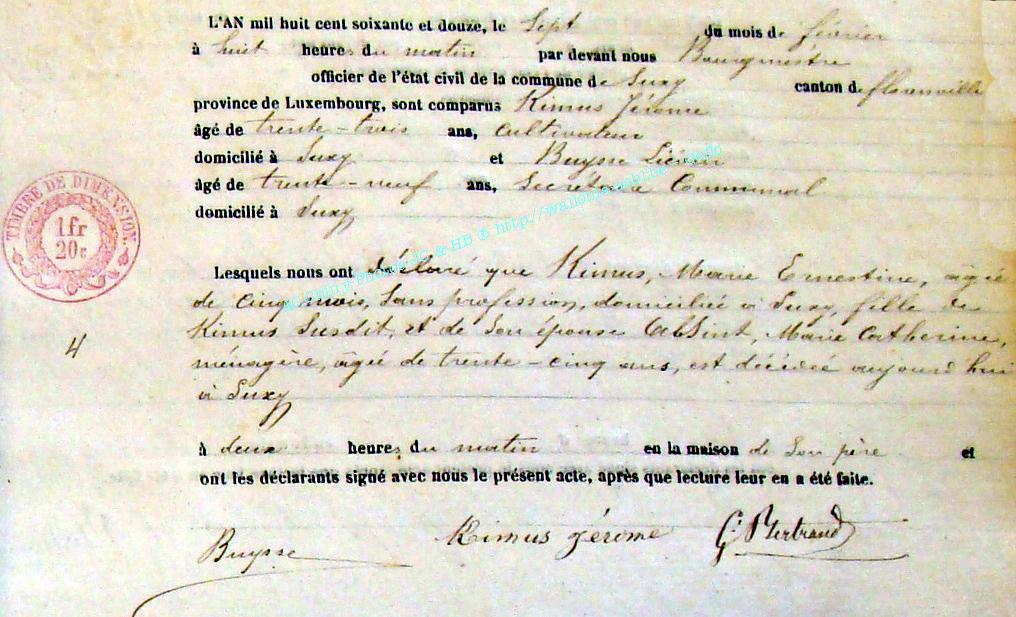 L'AN mil huit cent soixante et douze, le Sept du mois de février
à huit heures du matin par devant nous Bourgmestre
officier de l'état civil de la commune de Suxy canton de florenville
province de Luxembourg, sont comparus Kimus Jérome
âgé de trente-trois ans, cultivateur
domicilié à Suxy et Buysse Liévin
âgé de trente-neuf ans, Secrétaire Communal
domicilié à Suxy
TIMBRE DE DIMENSION.
1 fr
20 c
Lesquels nous ont déclaré que Kimus, Marie Ernestine, agée
de cinq mois, Sans profession, domiciliée à Suxy, fille de
Kimus Susdit, et de Son épouse Absint, Marie Catherine,
4
ménagère, agée de trente-cinq ans, est décédée aujourd'hui
à Suxy
à deux heures du matin en la maison de Son père et
ont les déclarants signé avec nous le présent acte, après que lecture leur en a été faite.
Buysse Kimus Jérome G. Bertrand